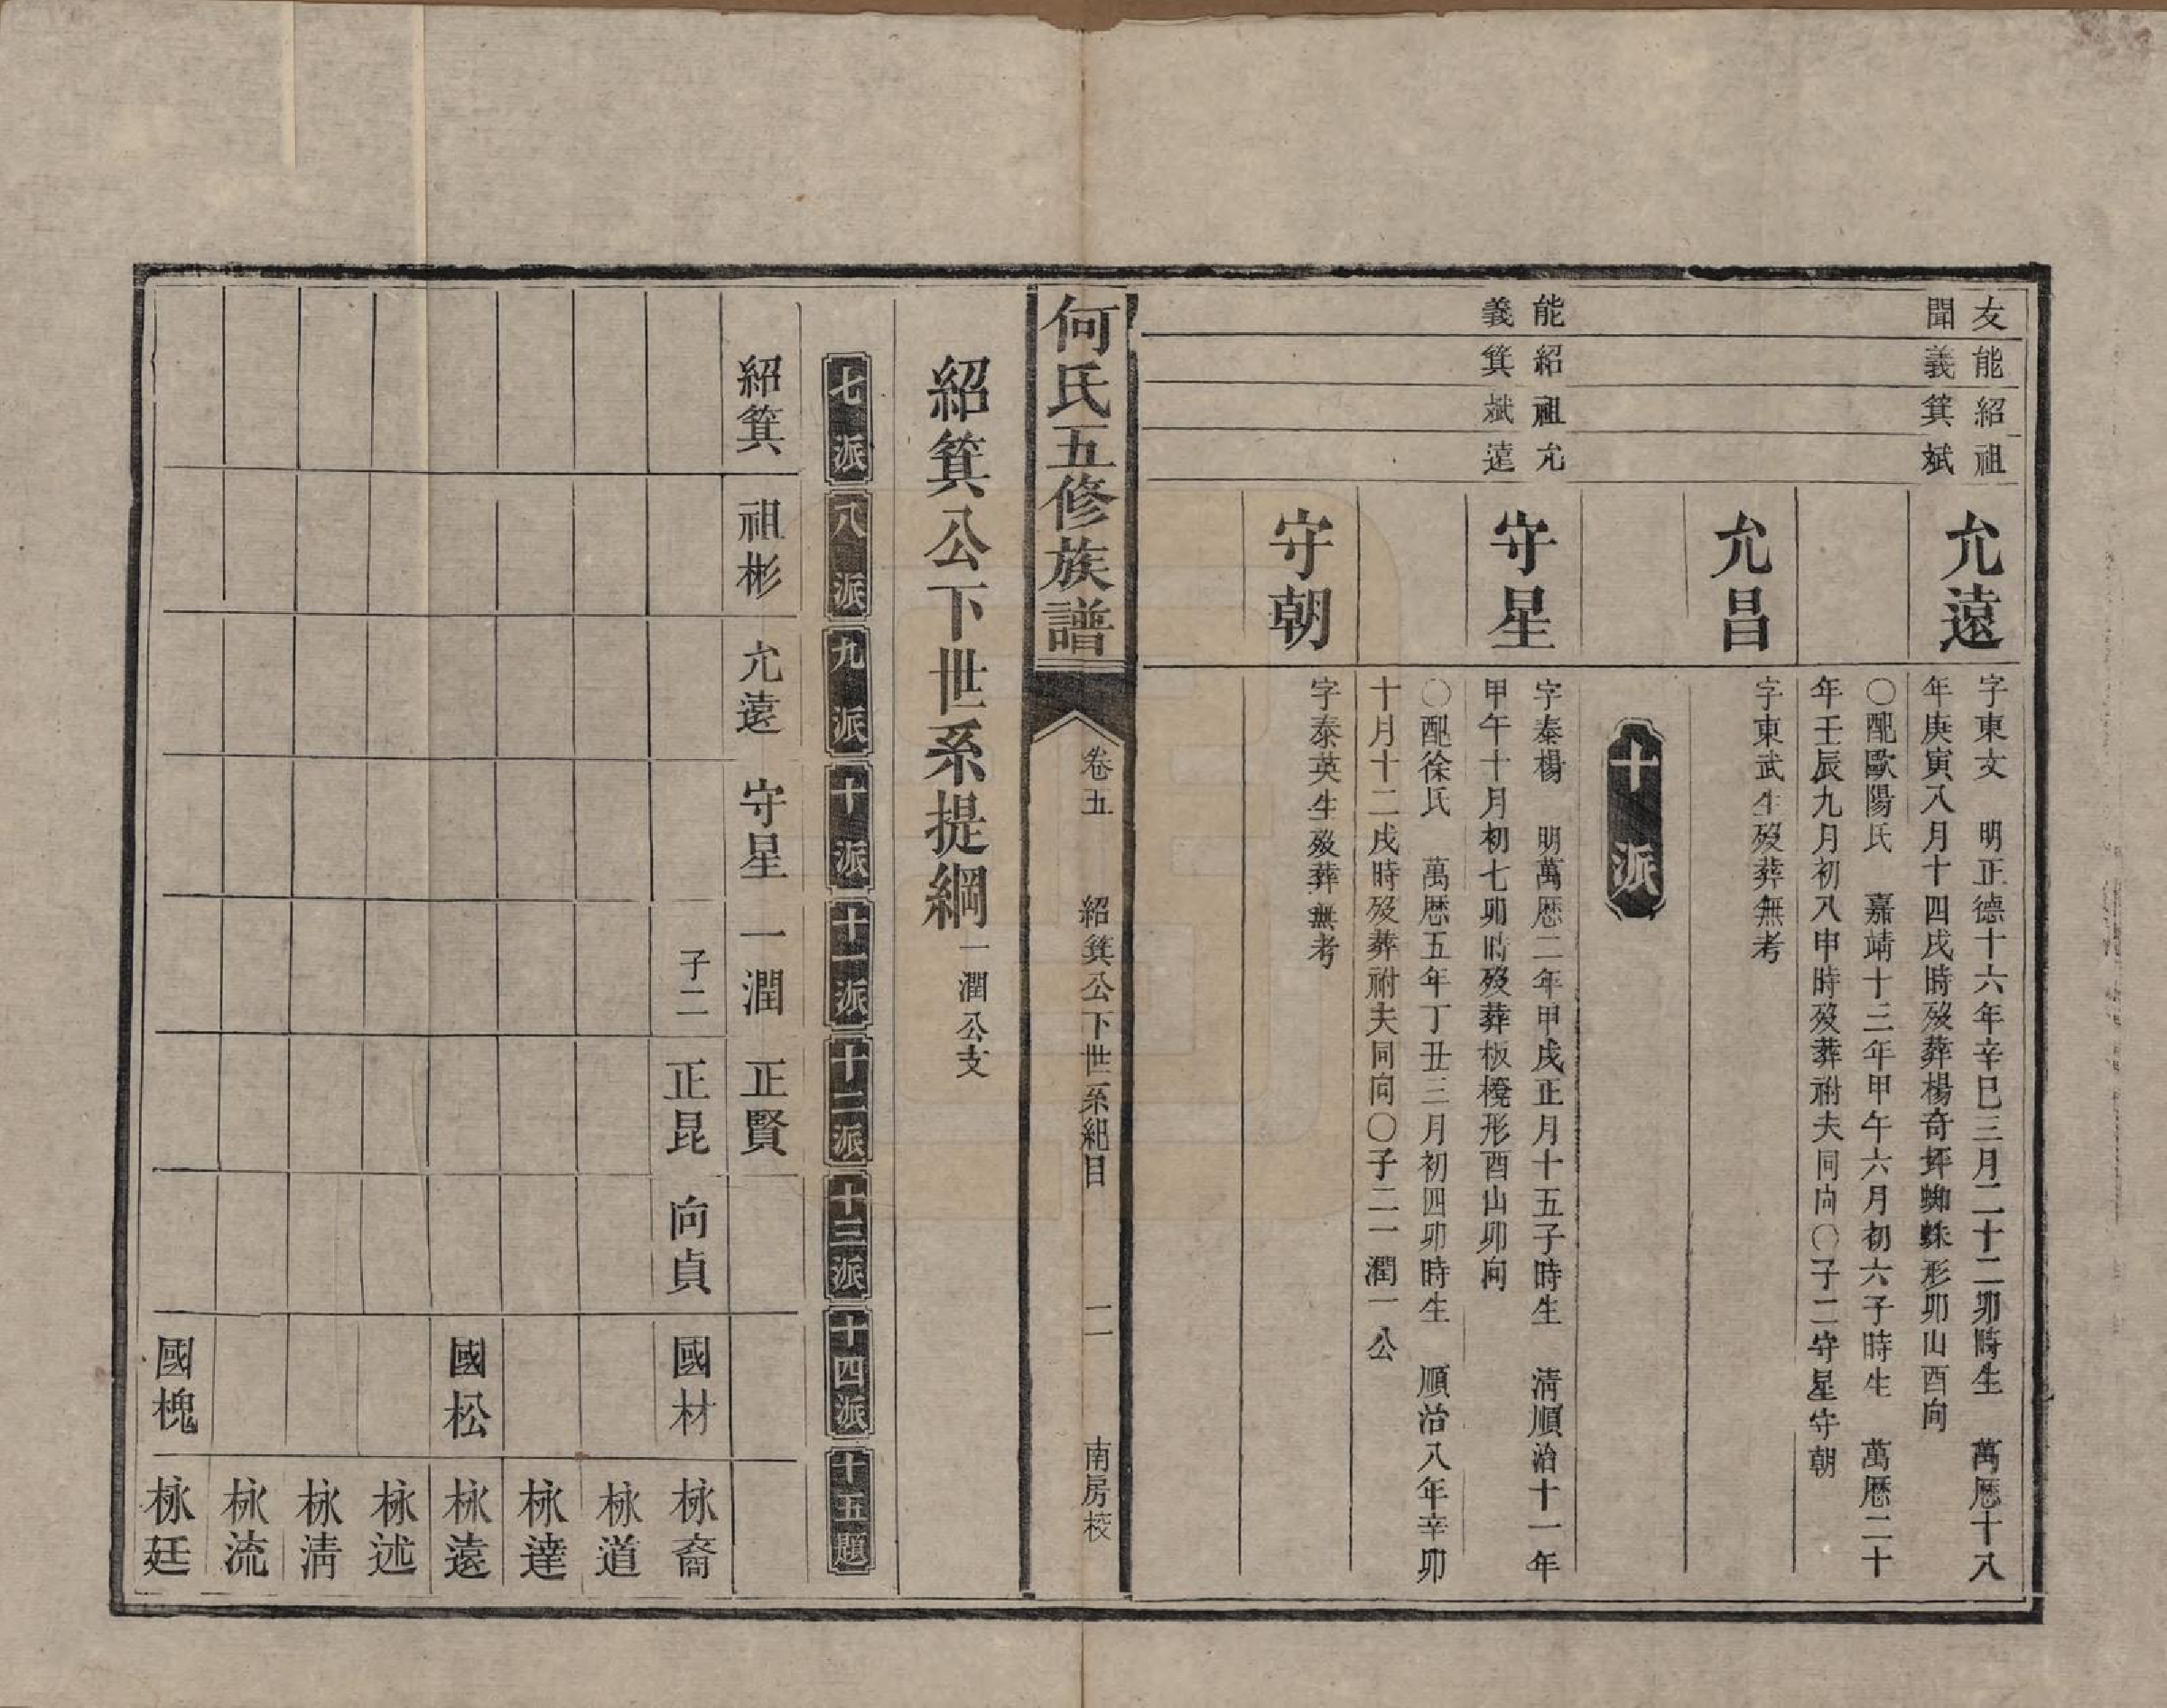 友聞
能義
紹箕
祖斌
允遠
字東文　明正德十六年辛巳三月二十二卯時生　萬歷十八
年庚寅八月十四戌時歿葬楊奇坪蜘蛛形卯山酉向
〇配歐陽氏　嘉靖十三年甲午六月初六子時生　萬歷二十
年壬辰九月初八申時歿葬祔夫同向〇子二守星守朝
允昌
字東武生歿葬無考
十派
能義
紹箕
祖斌
允遠
守星
字泰楊　明萬歷二年甲戌正月十五子時生　淸順治十一年
甲午十月初七卯時歿葬板櫈形酉山卯向
〇配徐氏　萬歷五年丁丑三月初四卯時生　順治八年辛卯
十月十二戌時歿葬祔夫同向〇子二一潤一公
守朝
字泰英生歿葬無考
何氏五修族譜
卷五　紹箕公下世系紀目　二　南房校
紹箕公下世系提綱一潤公支
七派　八派　九派　十派　十一派　十二派　十三派　十四派　十五題
紹箕　祖彬　允遠　守星　一潤　正賢
子二　正昆　向貞　國材　栐裔
栐道
栐達
國松　栐遠
栐述
栐淸
栐流
國槐　栐廷